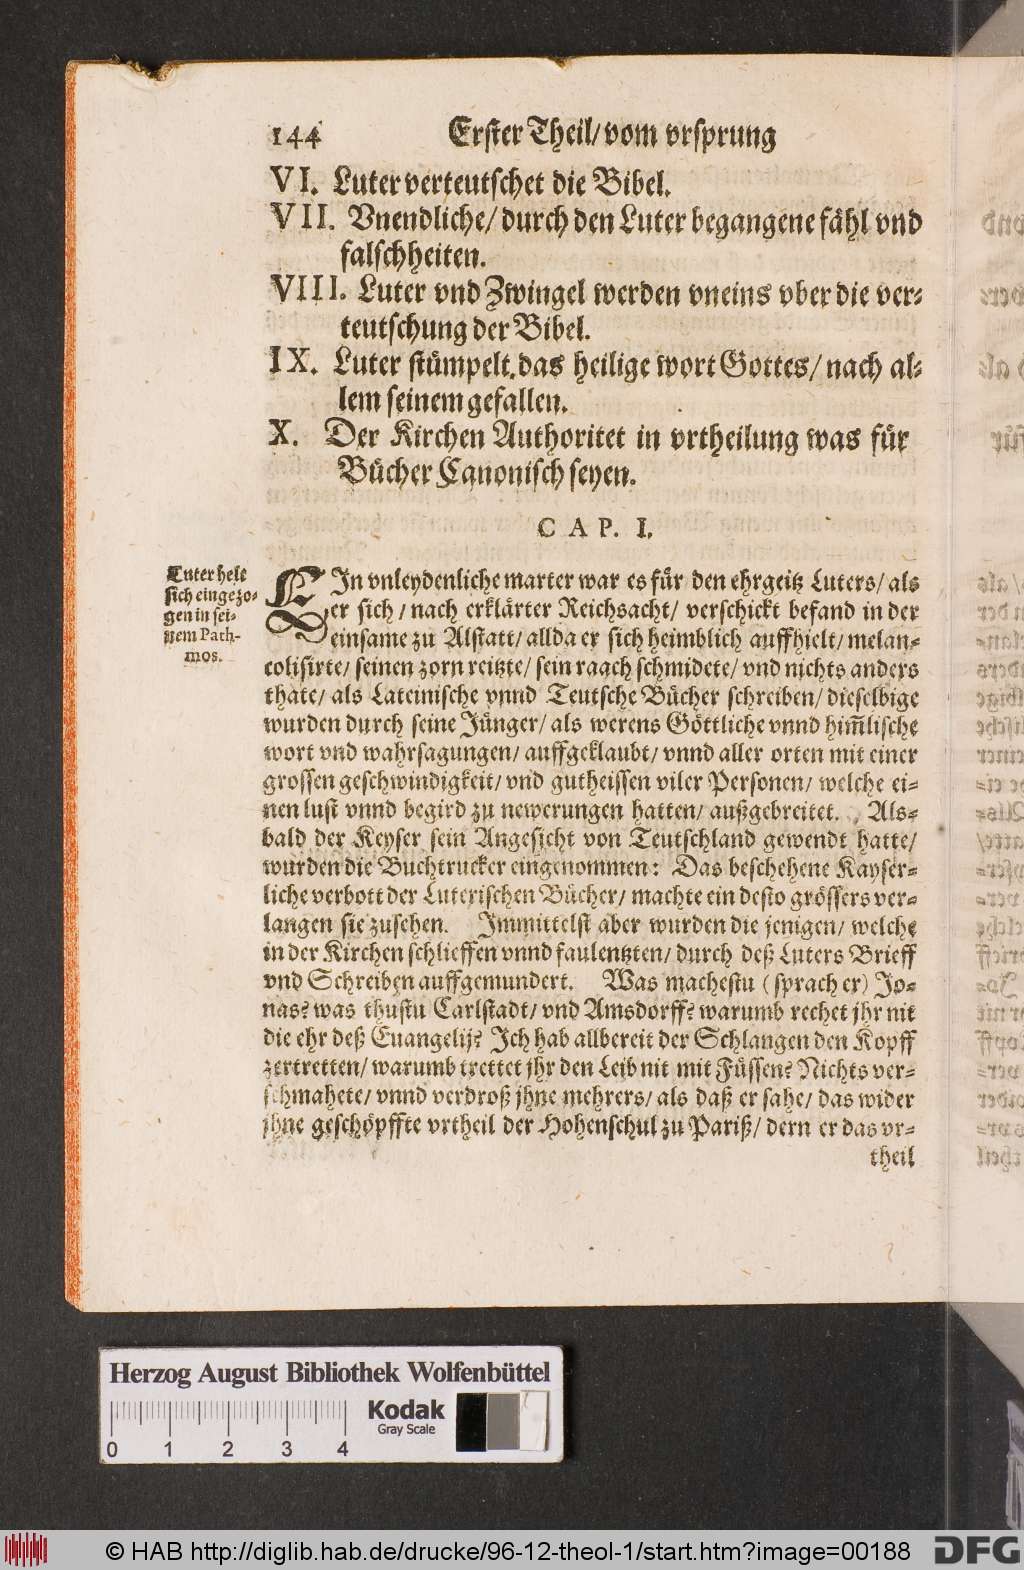 144 Erster Theil/ vom vrsprung
VI. Luter verteutschet die Bibel.
VII. Vnendliche/ durch den Luter begangene fähl vnd
falschheiten.
VIII. Luter vnd Zwingel werden vneins vber die ver-
teutschung der Bibel.
IX. Luter stümpelt das heilige wort Gottes/ nach al-
lem seinem gefallen.
X. Der Kirchen Authoritet in vrtheilung was für
Bücher Canonisch seyen.
CAP. I.
Luter helt
sich eingezo-
gen in sei-
nem Path-
mos.
EIn vnleydenliche marter war es für den ehrgeitz Luters/ als
er sich/ nach erklärter Reichsacht/ verschickt befand in der
einsame zu Alstatt/ allda er sich heimblich auffhielt/ melan-
colisirte/ seinen zorn reitzte/ sein raach schmidete/ vnd nichts anders
thäte/ als Lateinische vnnd Teutsche Bücher schreiben/ dieselbige
wurden durch seine Jünger/ als werens Göttliche vnnd him̃lische
wort vnd wahrsagungen/ auffgeklaubt/ vnnd aller orten mit einer
grossen geschwindigkeit/ vnd gutheissen viler Personen/ welche ei-
nen lust vnnd begird zu newerungen hatten/ außgebreitet. Als-
bald der Keyser sein Angesicht von Teutschland gewendt hatte/
wurden die Buchtrucker eingenommen: Das beschehene Kayser-
liche verbott der Luterischen Bücher/ machte ein desto grössers ver-
langen sie zusehen. Immittelst aber wurden die jenigen/ welche
in der Kirchen schlieffen vnnd faulentzten/ durch deß Luters Brieff
vnd Schreiben auffgemundert. Was machestu (sprach er) Jo-
nas? was thustu Carlstadt/ vnd Amsdorff? warumb rechet jhr nit
die ehr deß Euangelij? Ich hab allbereit der Schlangen den Kopff
zertretten/ warumb trettet jhr den Leib nit mit Füssen? Nichts ver-
schmahete/ vnnd verdroß jhne mehrers/ als daß er sahe/ das wider
jhne geschöpffte vrtheil der Hohenschul zu Pariß/ dern er das vr-
theil
Herzog August Bibliothek Wolfenbüttel
Kodak
Gray Scale
0 1 2 3 4
© HAB http://diglib.hab.de/drucke/96-12-theol-1/start.htm?image=00188
DFG